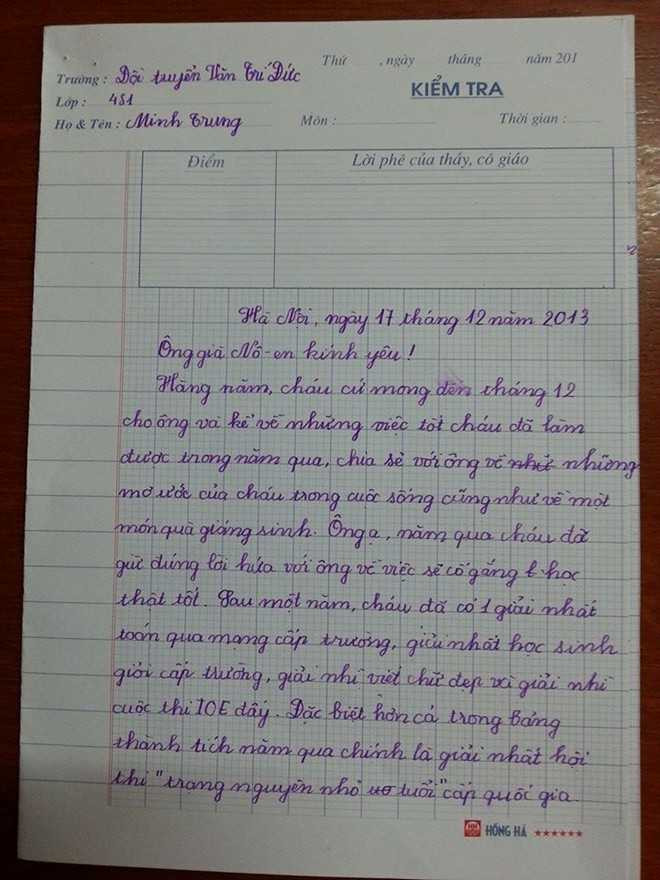 Thứ , ngày tháng năm 201
Trường : Đội tuyển Văn Trí Đức
Lớp : 4S1
KIỂM TRA
Họ & Tên : Minh Trung Môn : Thời gian :
Điểm Lời phê của thầy, cô giáo
Hà Nội, ngày 17 tháng 12 năm 2013
Ông già Nô-en kính yêu !
Hằng năm, cháu cứ mong đến tháng 12
cho ông và kể về những việc tốt cháu đã làm
được trong năm qua, chia sẻ với ông về nhứ những
mơ ước của cháu trong cuộc sống cũng như về một
món quà giáng sinh. Ông ạ, năm qua cháu đã
giữ đúng lời hứa với ông về việc sẽ cố gắng t học
thật tốt. Sau một năm, cháu đã có 1 giải nhất
toán qua mạng cấp trường, giải nhất học sinh
giỏi cấp trường, giải nhì viết chữ đẹp và giải nhì
cuộc thi IOE đấy. Đặc biệt hơn cả trong bảng
thành tích năm qua chính là giải nhất hội
thi "trạng nguyên nhỏ tuổi" cấp quốc gia
HỒNG HÀ ★★★★★★